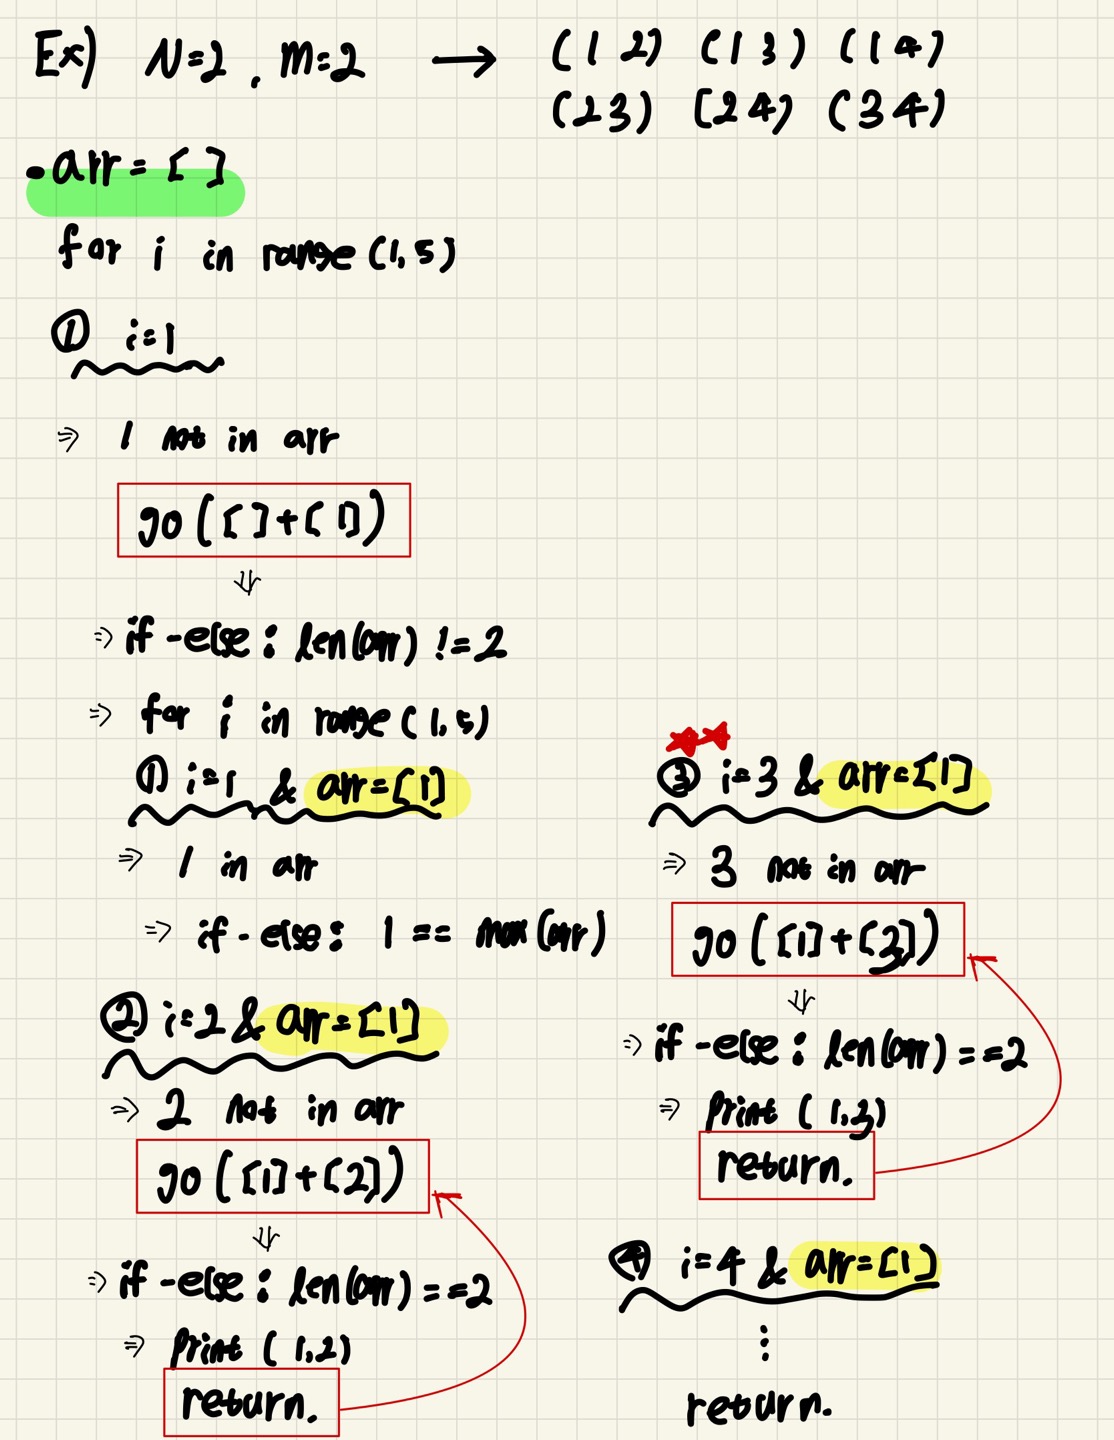 Ex) N=2, M=2 → (1 2) (1 3) (1 4)
(2 3) (2 4) (3 4)
- arr = [ ]
for i in range (1,5)
① i=1
⇒ 1 not in arr
go ([ ]+[1])
⇓
⇒ if-else: len(arr) !=2
⇒ for i in range (1,5)
① i=1 & arr=[1]
⇒ 1 in arr
⇒ if-else: 1 == max(arr)
② i=2 & arr=[1]
⇒ 2 not in arr
go ([1]+[2])
⇓
⇒ if-else: len(arr)==2
⇒ print ( 1,2)
return.
③ i=3 & arr=[1]
⇒ 3 not in arr
go ([1]+[3])
⇓
⇒ if-else: len(arr)==2
⇒ print ( 1,3)
return.
④ i=4 & arr=[1]
⋮
return.